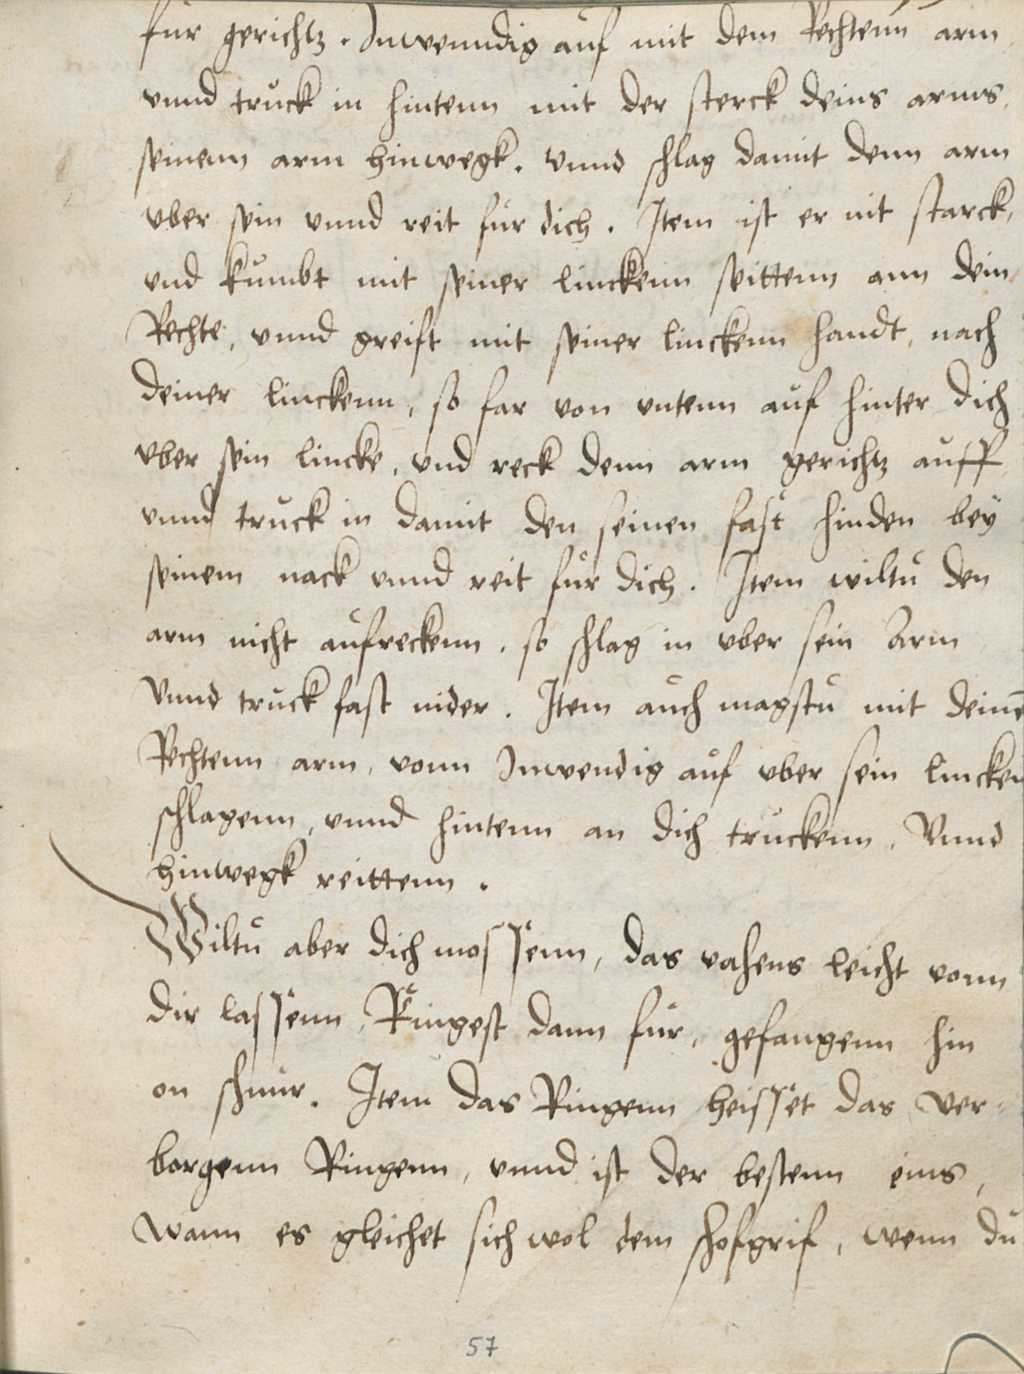 fur gerichtz. Inwenndig auf mit dem Rechtenn arm
vnnd truck in hintenn mit der sterck deins arms,
seinenn arm hinwegk. vnnd schlag damit denn arm
vber sein vnnd reit fur dich. Item ist er nit starck,
vnd kumbt mit seiner linckenn seittenn ann dein
Rechte, vnnd greift mit seiner linckenn handt, nach
deiner linckenn, so far von vntenn auf hinter dich
vber sein lincke, vnd reck denn arm gerichtz auff
vnnd truck in damit den seinen fast hinden bey
seinem nack vnnd reit fur dich. Item wiltu den
arm nicht aufreckenn. so schlag in vber sein Arm
Vnnd truck fast nider. Item auch magstu mit deinē
Rechtenn arm, vonn Inwendig auf vber sein lincken
schlagenn, vnnd hintenn an dich truckenn, Vnnd
hinwegk reittenn.
Wiltu aber dich mossenn, das vahens leicht vonn
dir lassenn, Ringest dann fur, gefangenn hin
on schnur. Item das Ringenn heisset das Ver-
borgenn Ringenn, vnnd ist der bestenn eins,
wann es gleichet sich wol dem schofgrif, wenn du
57